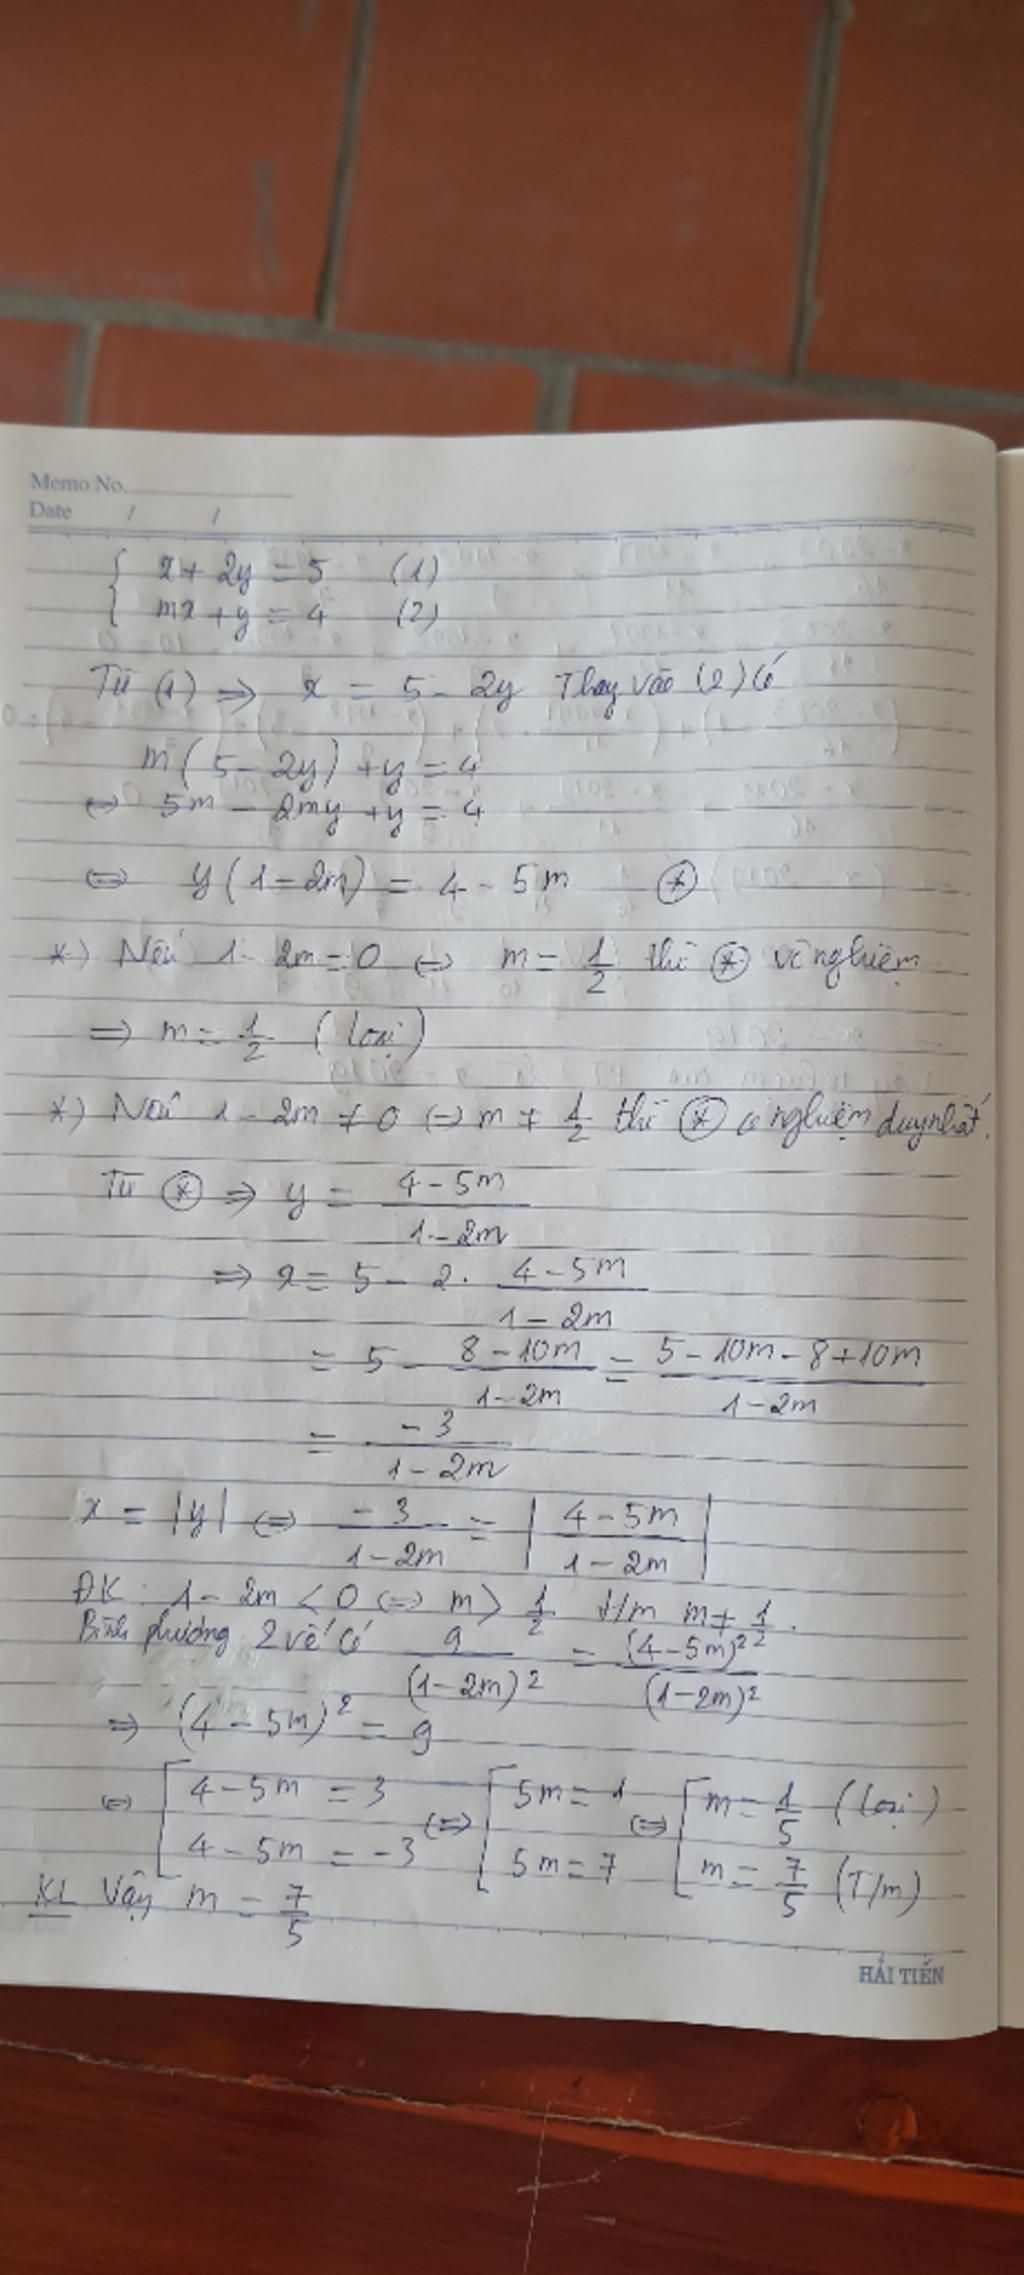 Memo No.
Date / /
{ x + 2y = 5 (1)
{ mx + y = 4 (2)
Từ (1) ⇒ x = 5 - 2y Thay vào (2) có
m(5 - 2y) + y = 4
⇔ 5m - 2my + y = 4
⇔ y(1 - 2m) = 4 - 5m ⊛
*) Nếu 1 - 2m = 0 ⇔ m = 1/2 thì ⊛ vô nghiệm
⇒ m = 1/2 (loại)
*) Nếu 1 - 2m ≠ 0 ⇔ m ≠ 1/2 thì ⊛ có nghiệm duy nhất.
Từ ⊛ ⇒ y = (4 - 5m)/(1 - 2m)
⇒ x = 5 - 2. (4 - 5m)/(1 - 2m)
= 5 - (8 - 10m)/(1 - 2m) = (5 - 10m - 8 + 10m)/(1 - 2m)
= -3/(1 - 2m)
x = |y| ⇔ -3/(1 - 2m) = |(4 - 5m)/(1 - 2m)|
ĐK: 1 - 2m < 0 ⇔ m > 1/2 t/m m ≠ 1/2.
Bình phương 2 vế có 9/(1 - 2m)² = (4 - 5m)²/(1 - 2m)²
⇒ (4 - 5m)² = 9
⇔ [ 4 - 5m = 3 ⇔ [ 5m = 1 ⇔ [ m = 1/5 (loại)
[ 4 - 5m = -3 [ 5m = 7 [ m = 7/5 (T/m)
KL Vậy m = 7/5
HẢI TIẾN